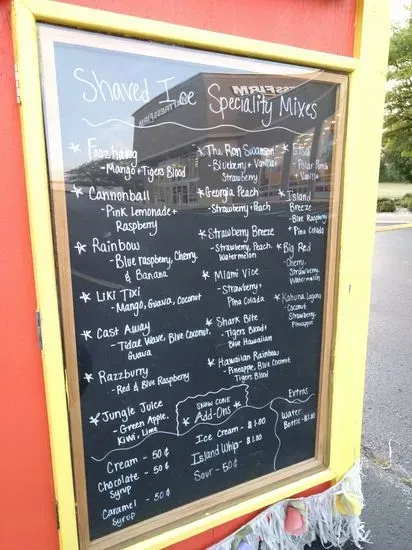 Shaved Ice Speciality Mixes
MATTRESS FIRM
* Foozhawg
- Mango + Tigers Blood
* Cannonball
- Pink Lemonade +
Raspberry
* Rainbow
- Blue raspberry, Cherry,
& Banana
* Liki Tixi
- Mango, Guava, Coconut
* Cast Away
- Tidal Wave, Blue Coconut,
Guava
* Razzburry
- Red & Blue Raspberry
* Jungle Juice
- Green Apple,
Kiwi, Lime
* The Ron Swanson
- Blueberry + Vanilla
Strawberry
* Georgia Peach
- Strawberry + Peach
* Strawberry Breeze
- Strawberry, Peach
Watermelon
* Miami Vice
- Strawberry +
Pina Colada
* Shark Bite
- Tigers Blood +
Blue Hawaiian
* Hawaiian Rainbow
- Pineapple, Blue Coconut
Tigers Blood
+ Vanilla
* Island
Breeze
- Blue Raspberry
+ Pina Colada
* Big Red
- Cherry,
Strawberry,
Watermelon
* Kahuna Laguna
- Coconut
Strawberry,
Pineapple
Snow Cone
Add-Ons
Cream - 50¢
Chocolate - 50¢
Syrup
Caramel - 50¢
Syrup
Ice Cream - $1.00
Island Whip - $1.00
Sour - 50¢
Extras
Water
Bottle - $1.00